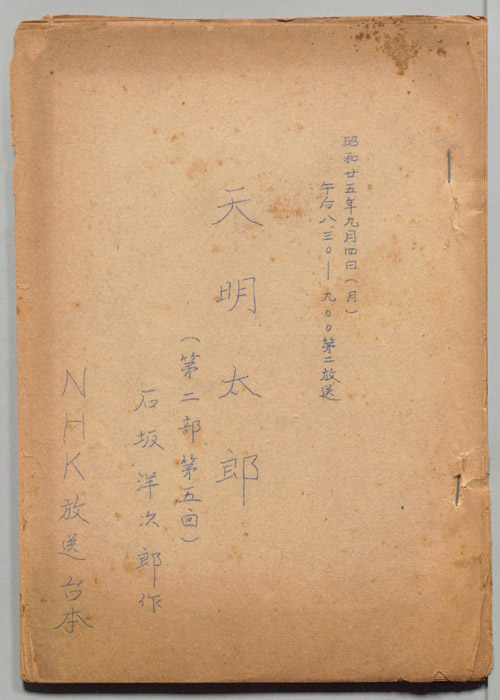 昭和廿五年九月四日(月)
午后八.三〇―九.〇〇第二放送
天明太郎
(第二部第五回)
石坂洋次郎作
NHK放送台本